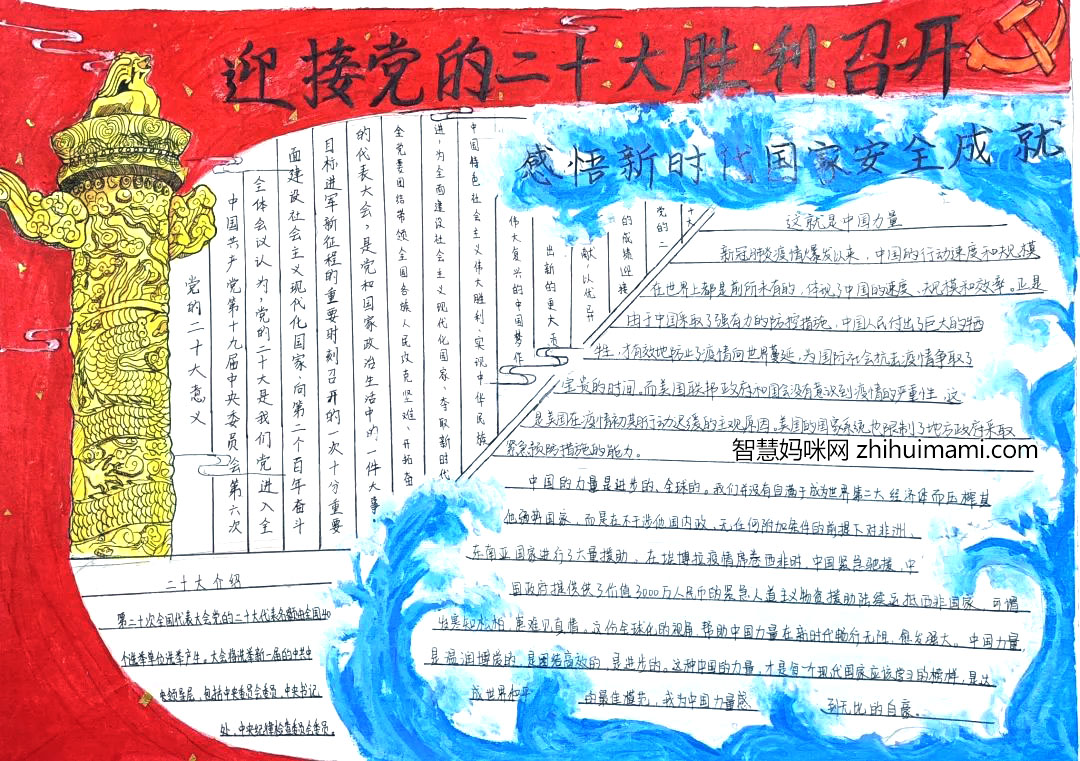 迎接党的二十大胜利召开
感悟新时代国家安全成就
党的二十大意义
中国共产党第十九届中央委员会第六次
全体会议认为,党的二十大是我们党进入全
面建设社会主义现代化国家、向第二个百年奋斗
目标进军新征程的重要时刻召开的一次十分重要
的代表大会,是党和国家政治生活中的一件大事。
全党要团结带领全国各族人民攻克坚难、开拓奋
进,为全面建设社会主义现代化国家、夺取新时代
中国特色社会主义伟大胜利、实现中华民族
伟大复兴的中国梦作
出新的更大贡
献,以优异
的成绩迎接
党的二
十大
二十大介绍
第二十次全国代表大会党的二十大代表名额由全国40
个选举单位选举产生。大会将选举新一届的中共中
央领导层,包括中央委员会委员、中央书记
处、中央纪律检查委员会委员。
这就是中国力量
新冠肺炎疫情爆发以来,中国的行动速度和规模
在世界上都是前所未有的,体现了中国的速度、规模和效率。正是
由于中国采取了强有力的防控措施,中国人民付出了巨大的牺
牲,才有效地防止了疫情向世界蔓延,为国际社会抗击疫情争取了
宝贵的时间。而美国联邦政府和国会没有意识到疫情的严重性,这
是美国在疫情初期的行动迟缓的主观原因,美国的国家系统也限制了地方政府采取
紧急预防措施的能力。
智慧妈咪网 zhihuimami.com
中国的力量是进步的、全球的。我们并没有自满于成为世界第二大经济体而压榨其
他弱势国家,而是在不干涉他国内政、无任何附加条件的前提下对非洲、
东南亚国家进行了大量援助。在埃博拉疫情席卷西非时,中国紧急驰援,中
国政府提供了价值3000万人民币的紧急人道主义物资援助陆续运抵西非国家,可谓
岁寒知松柏,患难见真情。这份全球化的视角,帮助中国力量在新时代畅行无阻,愈发强大。中国力量
是温润博发的,是团结高效的,是进步的。这种中国的力量,才是每个现代国家应该学习的榜样,是达
成世界和平 的最佳模范,我为中国力量感 到无比的自豪。